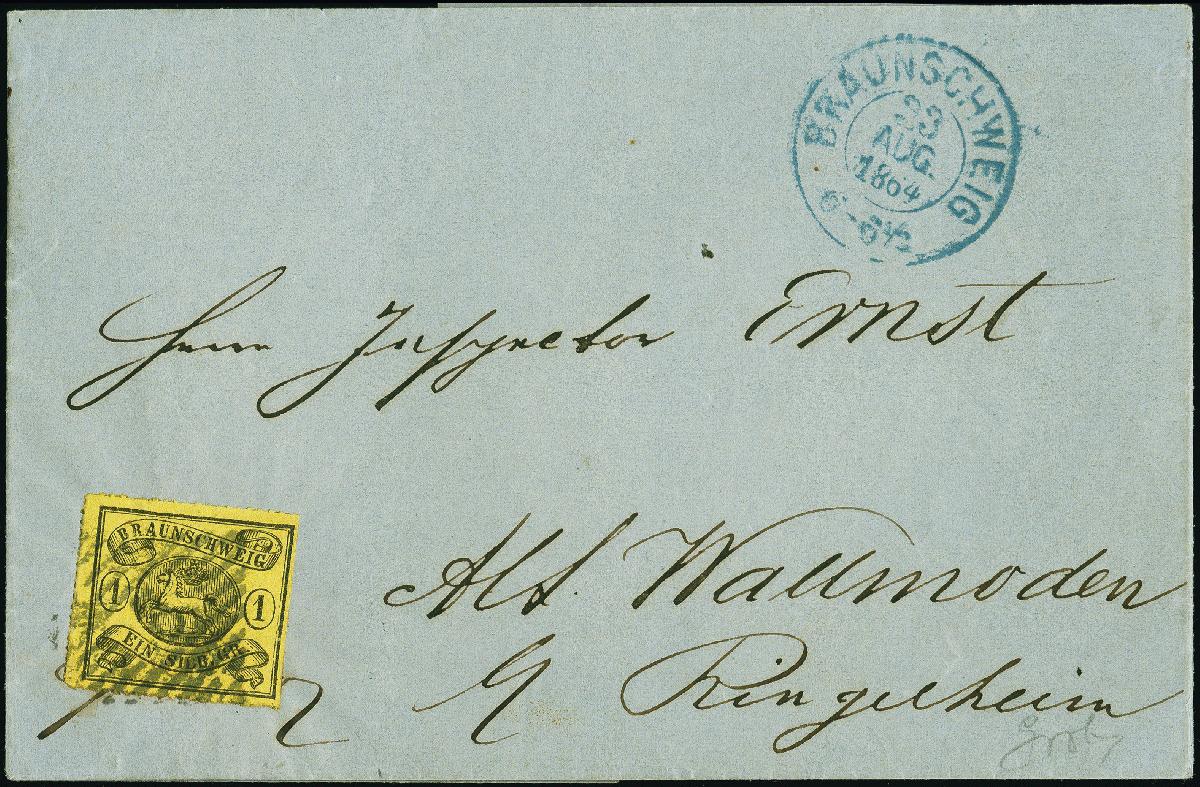 BRAUNSCHWEIG
23
AUG.
1864
6-6½
Herrn Inspector Ernst
BRAUNSCHWEIG
1 1
EIN SILB.GR.
Alt Wallmoden
Ringelheim